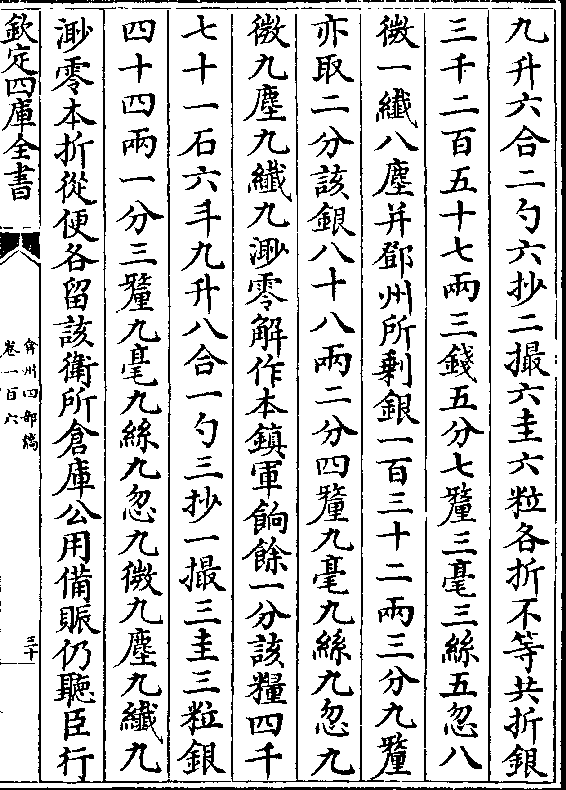 九升六合二勺六抄二撮六圭六粒各折不等共折銀
三千二百五十七兩三錢五分七釐三毫三絲五忽八
微一纖八塵并鄧州所剩銀一百三十二兩三分九釐
亦取二分該銀八十八兩二分四釐九毫九絲九忽九
微九塵九纖九渺零解作本鎮軍餉餘一分該糧四千
七十一石六斗九升八合一勺三抄一撮三圭三粒銀
四十四兩一分三釐九毫九絲九忽九微九塵九纖九
渺零本折從便各留該衛所倉庫公用備賑仍聽臣行
欽定四庫全書
弇州四部稿
卷一百六
三十